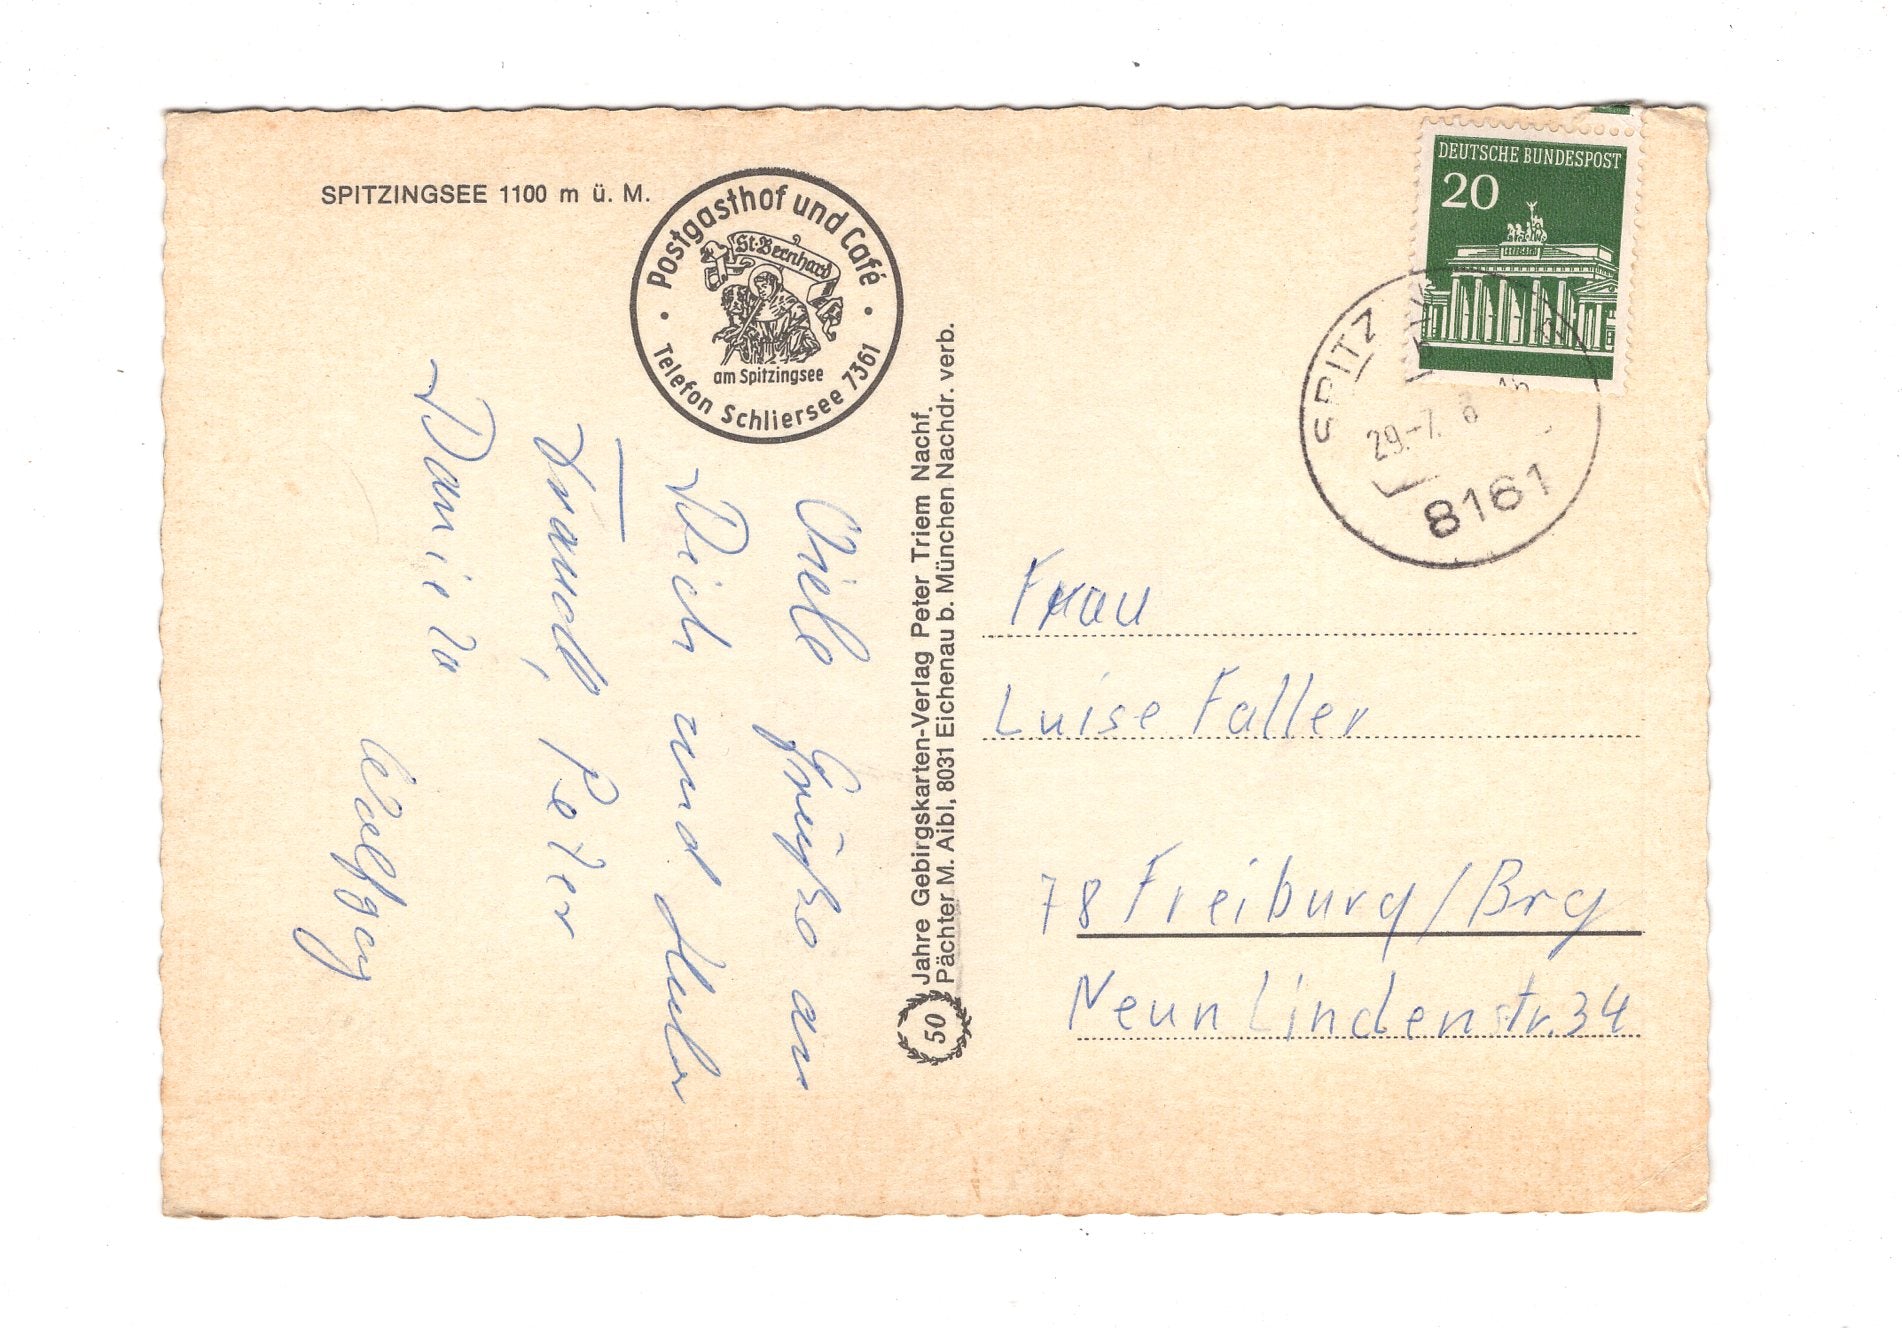 SPITZINGSEE 1100 m ü. M.
Postgasthof und Café
St. Bernhard
am Spitzingsee
Telefon Schliersee 7361
Viele Grüße an
Dich und
Traudl, Peter
Daniela
Wolfgang
50 Jahre Gebirgskarten-Verlag Peter Triem Nachf.
Pächter M. Aibl, 8031 Eichenau b. München Nachdr. verb.
DEUTSCHE BUNDESPOST
20
SPITZ
29.-7.
8161
Frau
Luise Faller
78 Freiburg/Brg
Neun Lindenstr. 34